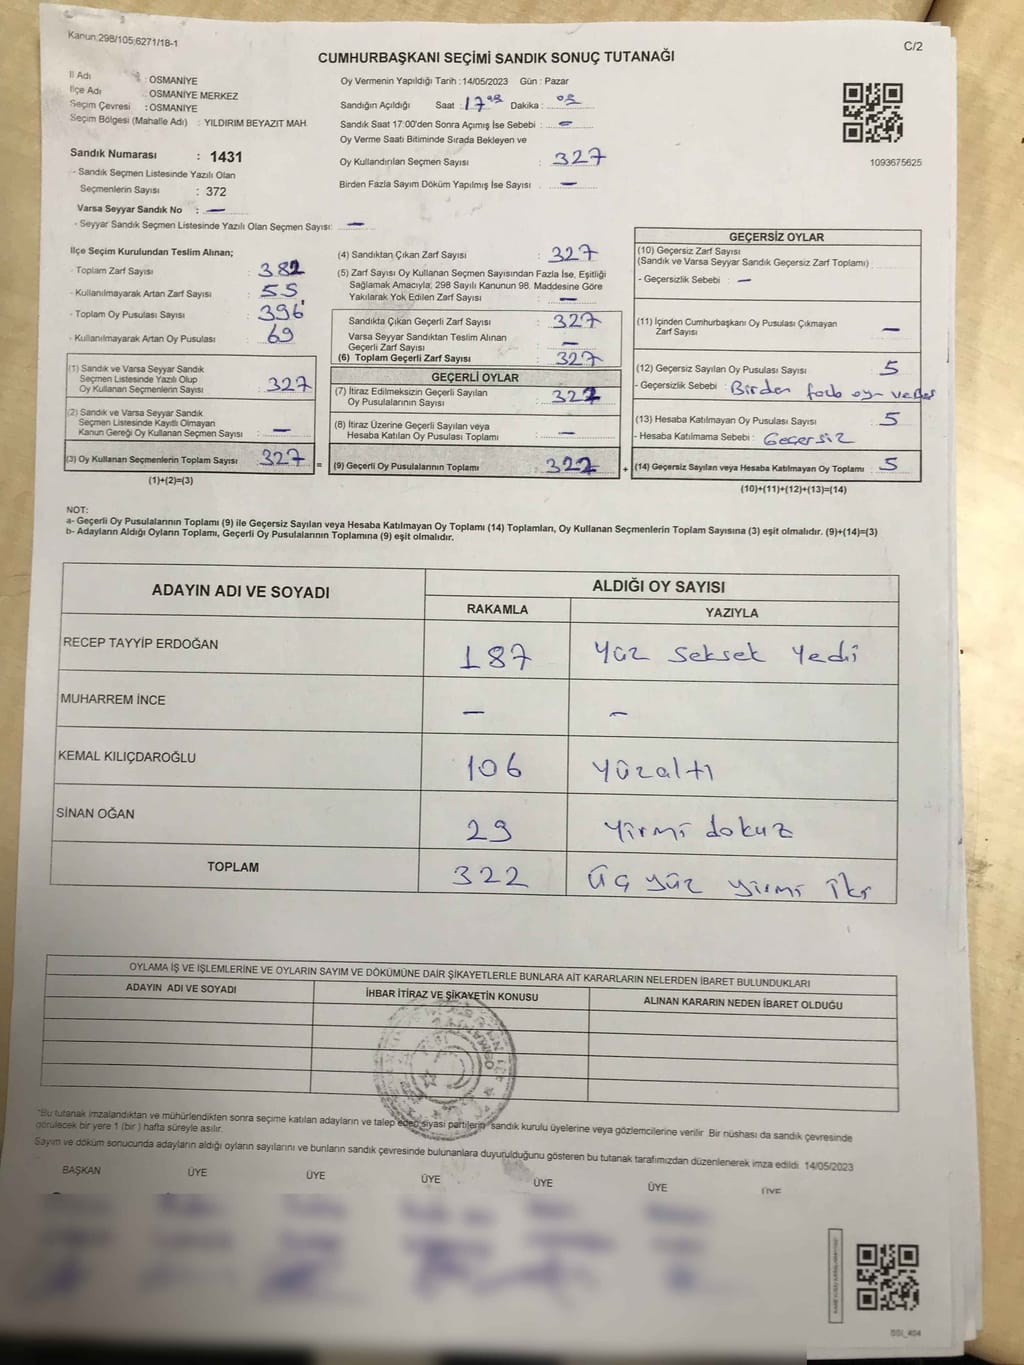 Kanun:298/105;6271/18-1
C/2
CUMHURBAŞKANI SEÇİMİ SANDIK SONUÇ TUTANAĞI
İl Adı : OSMANİYE
İlçe Adı : OSMANİYE MERKEZ
Seçim Çevresi : OSMANİYE
Seçim Bölgesi (Mahalle Adı) : YILDIRIM BEYAZIT MAH.
Sandık Numarası : 1431
- Sandık Seçmen Listesinde Yazılı Olan
Seçmenlerin Sayısı : 372
Varsa Seyyar Sandık No : —
- Seyyar Sandık Seçmen Listesinde Yazılı Olan Seçmen Sayısı: —
Oy Vermenin Yapıldığı Tarih : 14/05/2023 Gün : Pazar
Sandığın Açıldığı Saat : 17 Dakika :
Sandık Saat 17:00'den Sonra Açımış İse Sebebi : —
Oy Verme Saati Bitiminde Sırada Bekleyen ve
Oy Kullandırılan Seçmen Sayısı : 327
Birden Fazla Sayım Döküm Yapılmış İse Sayısı : —
1093675625
İlçe Seçim Kurulundan Teslim Alınan;
- Toplam Zarf Sayısı : 382
- Kullanılmayarak Artan Zarf Sayısı : 55
- Toplam Oy Pusulası Sayısı : 396
- Kullanılmayarak Artan Oy Pusulası : 69
(1) Sandık ve Varsa Seyyar Sandık
Seçmen Listesinde Yazılı Olup
Oy Kullanan Seçmenlerin Sayısı : 327
(2) Sandık ve Varsa Seyyar Sandık
Seçmen Listesinde Kayıtlı Olmayan
Kanun Gereği Oy Kullanan Seçmen Sayısı : —
(3) Oy Kullanan Seçmenlerin Toplam Sayısı : 327 =
(1)+(2)=(3)
(4) Sandıktan Çıkan Zarf Sayısı : 327
(5) Zarf Sayısı Oy Kullanan Seçmen Sayısından Fazla İse, Eşitliği
Sağlamak Amacıyla; 298 Sayılı Kanunun 98. Maddesine Göre
Yakılarak Yok Edilen Zarf Sayısı : —
Sandıkta Çıkan Geçerli Zarf Sayısı : 327
Varsa Seyyar Sandıktan Teslim Alınan
Geçerli Zarf Sayısı : —
(6) Toplam Geçerli Zarf Sayısı : 327
GEÇERLİ OYLAR
(7) İtiraz Edilmeksizin Geçerli Sayılan
Oy Pusulalarının Sayısı : 322
(8) İtiraz Üzerine Geçerli Sayılan veya
Hesaba Katılan Oy Pusulası Toplamı : —
(9) Geçerli Oy Pusulalarının Toplamı : 322 +
GEÇERSİZ OYLAR
(10) Geçersiz Zarf Sayısı
(Sandık ve Varsa Seyyar Sandık Geçersiz Zarf Toplamı)
- Geçersizlik Sebebi : —
(11) İçinden Cumhurbaşkanı Oy Pusulası Çıkmayan
Zarf Sayısı : —
(12) Geçersiz Sayılan Oy Pusulası Sayısı : 5
- Geçersizlik Sebebi : Birden fazla oy
(13) Hesaba Katılmayan Oy Pusulası Sayısı : 5
- Hesaba Katılmama Sebebi : Geçersiz
(14) Geçersiz Sayılan veya Hesaba Katılmayan Oy Toplamı : 5
(10)+(11)+(12)+(13)=(14)
NOT:
a- Geçerli Oy Pusulalarının Toplamı (9) ile Geçersiz Sayılan veya Hesaba Katılmayan Oy Toplamı (14) Toplamları, Oy Kullanan Seçmenlerin Toplam Sayısına (3) eşit olmalıdır. (9)+(14)=(3)
b- Adayların Aldığı Oyların Toplamı, Geçerli Oy Pusulalarının Toplamına (9) eşit olmalıdır.
ADAYIN ADI VE SOYADI
ALDIĞI OY SAYISI
RAKAMLA YAZIYLA
RECEP TAYYİP ERDOĞAN 187 Yüz seksek Yedi
MUHARREM İNCE — —
KEMAL KILIÇDAROĞLU 106 Yüzaltı
SİNAN OĞAN 29 Yirmi dokuz
TOPLAM 322 üç yüz yirmi iki
OYLAMA İŞ VE İŞLEMLERİNE VE OYLARIN SAYIM VE DÖKÜMÜNE DAİR ŞİKAYETLERLE BUNLARA AİT KARARLARIN NELERDEN İBARET BULUNDUKLARI
ADAYIN ADI VE SOYADI İHBAR İTİRAZ VE ŞİKAYETİN KONUSU ALINAN KARARIN NEDEN İBARET OLDUĞU
*Bu tutanak imzalandıktan ve mühürlendikten sonra seçime katılan adayların ve talep eden siyasi partilerin sandık kurulu üyelerine veya gözlemcilerine verilir. Bir nüshası da sandık çevresinde
görülecek bir yere 1 (bir ) hafta süreyle asılır.
Sayım ve döküm sonucunda adayların aldığı oyların sayılarını ve bunların sandık çevresinde bulunanlara duyurulduğunu gösteren bu tutanak tarafımızdan düzenlenerek imza edildi. 14/05/2023
BAŞKAN ÜYE ÜYE ÜYE ÜYE ÜYE ÜYE